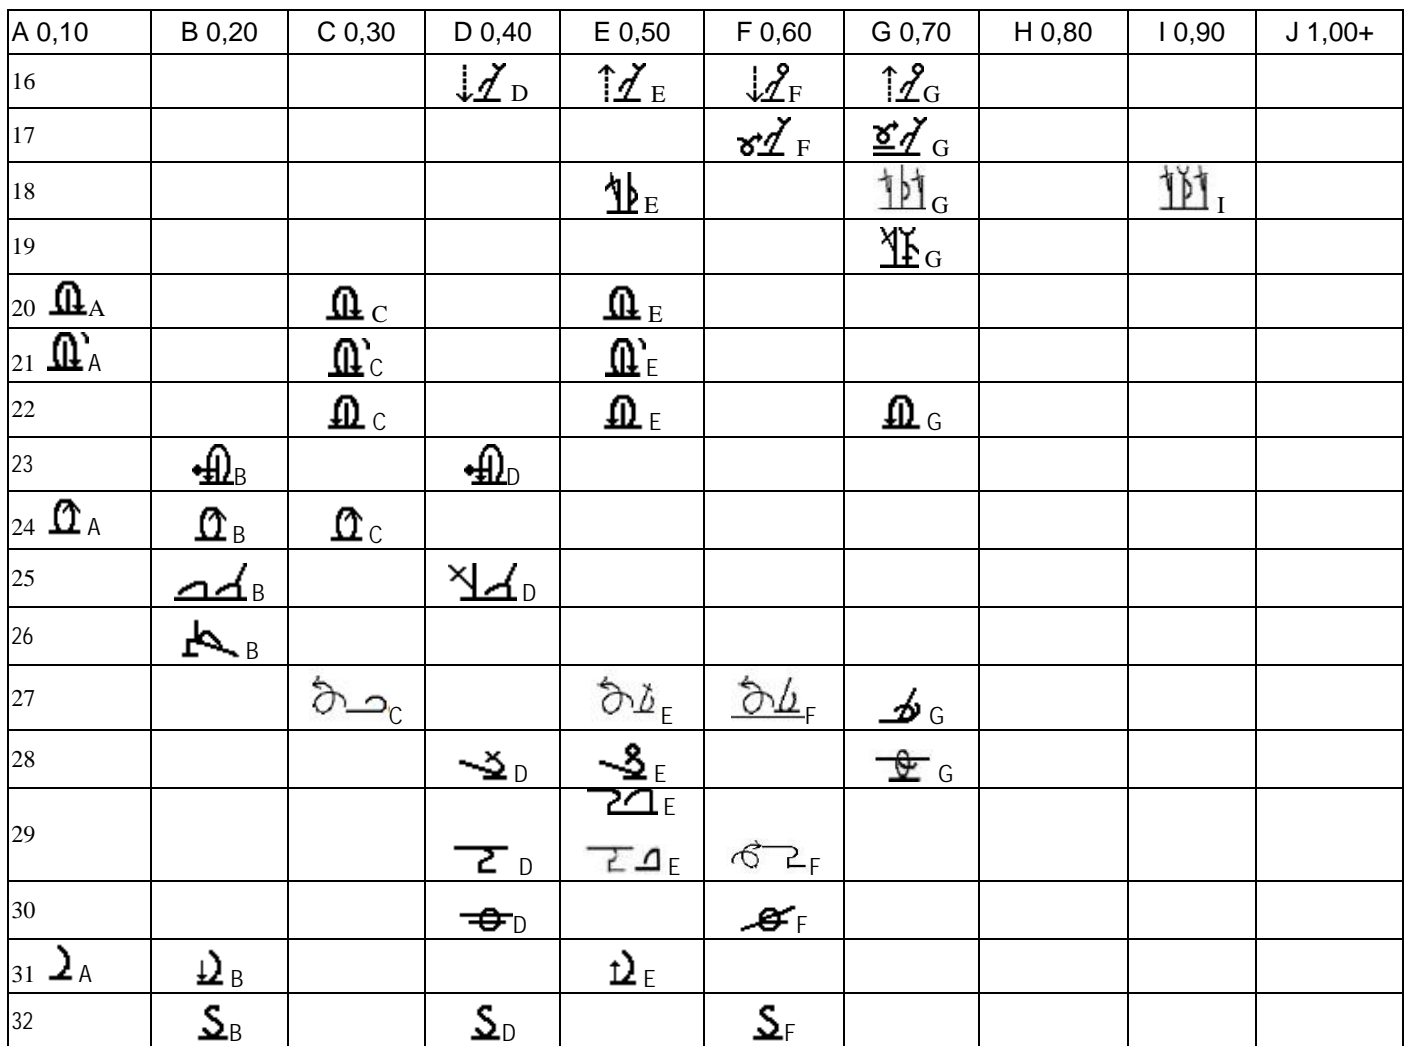 A 0,10 B 0,20 C 0,30 D 0,40 E 0,50 F 0,60 G 0,70 H 0,80 I 0,90 J 1,00+
16 D E F G
17 F G
18 E G I
19 G
20 A C E
21 A C E
22 C E G
23 B D
24 A B C
25 B D
26 B
27 C E F G
28 D E G
E
29
D E F
30 D F
31 A B E
32 B D F